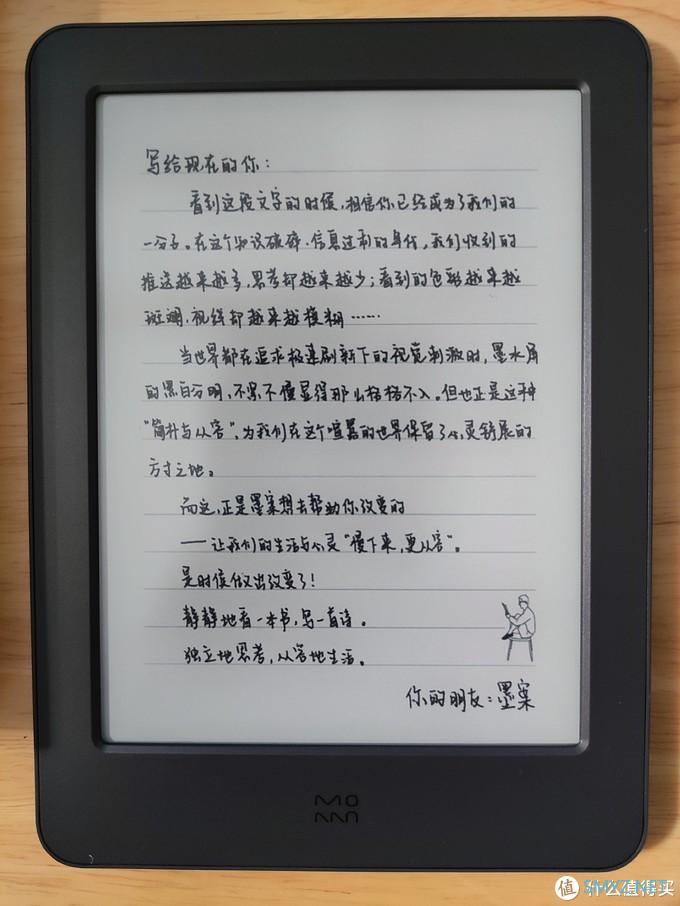 写给现在的你：
看到这段文字的时候，相信你已经成为了我们的
一分子。在这个知识破碎、信息过剩的年代，我们收到的
推送越来越多，思考却越来越少；看到的色彩越来越
斑斓，视线却越来越模糊……
当世界都在追求极速刷新下的视觉刺激时，墨水屏
的黑白分明，不累不慢显得那么格格不入。但也正是这种
“简朴与从容”，为我们在这个喧嚣的世界保留了心灵舒展的
方寸之地。
而这，正是墨案想去帮助你改变的
——让我们的生活与心灵“慢下来，更从容”。
是时候做出改变了！
静静地看一本书，写一首诗。
独立地思考，从容地生活。
你的朋友：墨案
MO
AN
值 什么值得买
SMYZ.NET